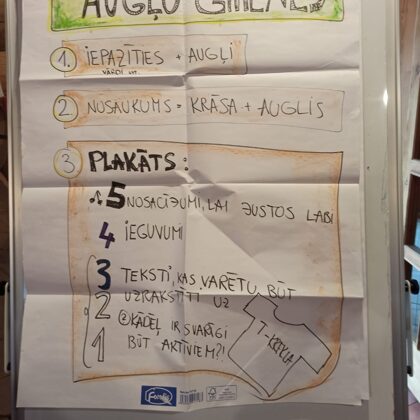 AUGĻU ĢIMENES
1. IEPAZĪTIES + AUGĻI
VĀRDI UTT.
2. NOSAUKUMS = KRĀSA + AUGLIS
3. PLAKĀTS:
5 NOSACĪJUMI, LAI JUSTOS LABI
4 IEGUVUMI
3 TEKSTI, KAS VARĒTU BŪT
2 UZRAKSTĪTI UZ
② KĀDĒĻ IR SVARĪGI
1 BŪT AKTĪVIEM?!
T-KREKLA
Forofis
FSC